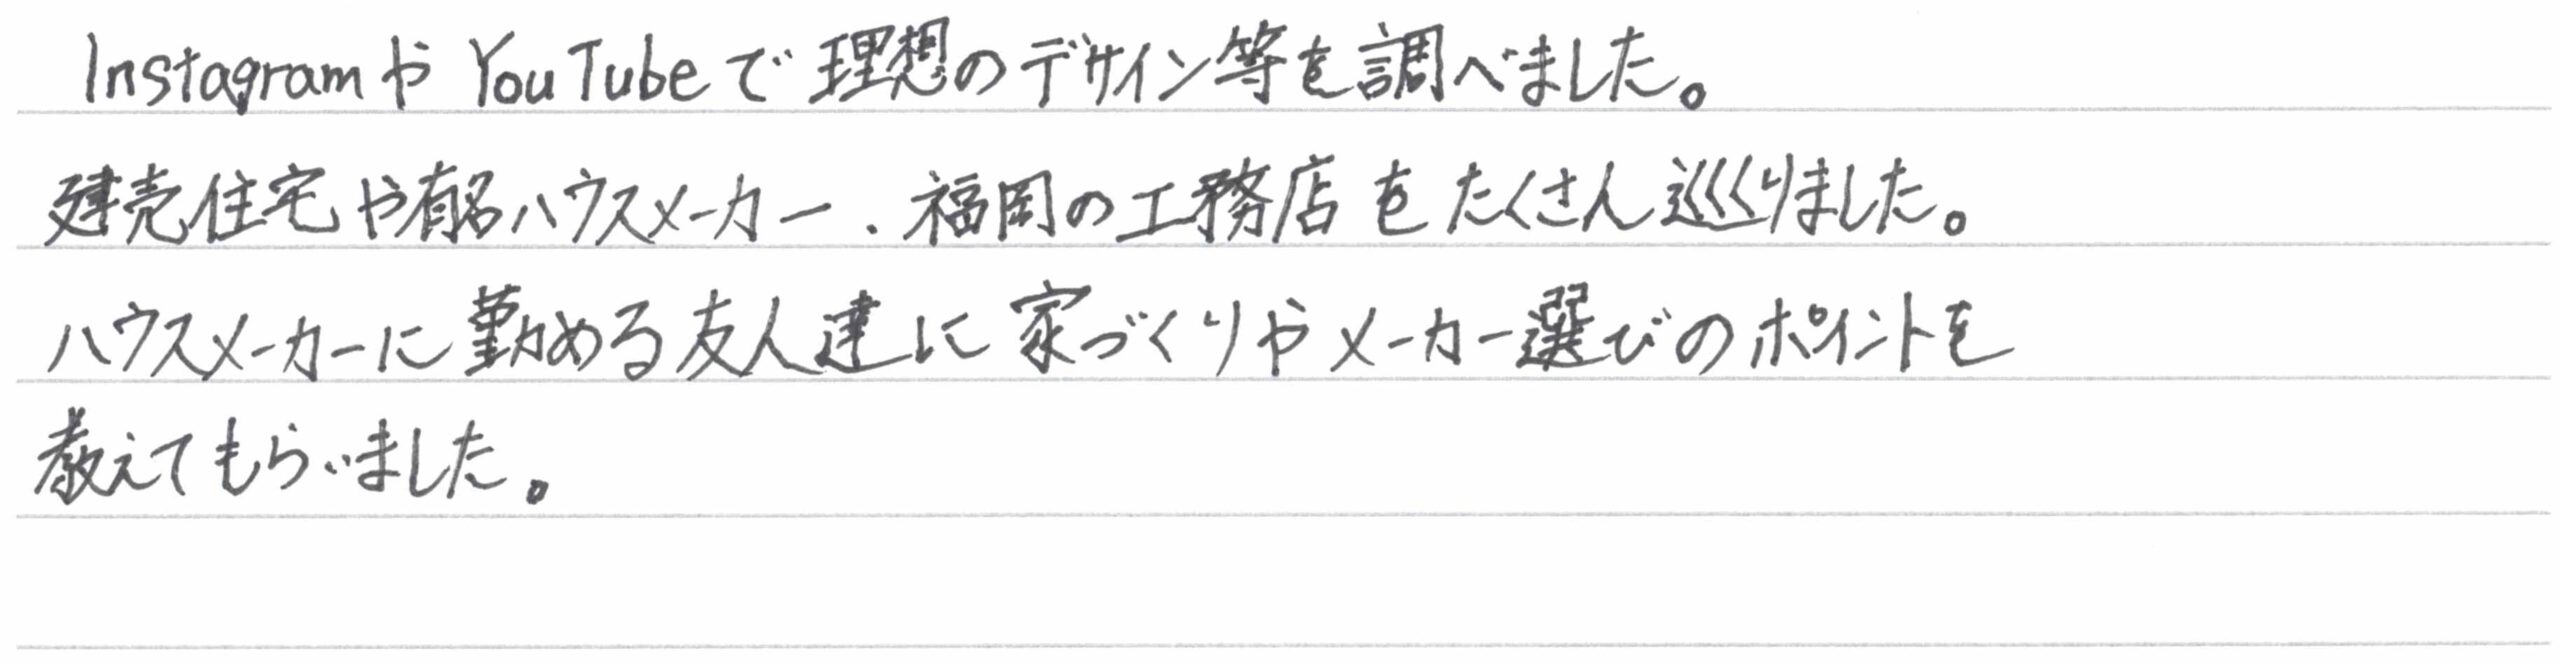 InstagramやYouTubeで理想のデザイン等を調べました。
建売住宅や有名ハウスメーカー、福岡の工務店をたくさん巡りました。
ハウスメーカーに勤める友人達に家づくりやメーカー選びのポイントを
教えてもらいました。